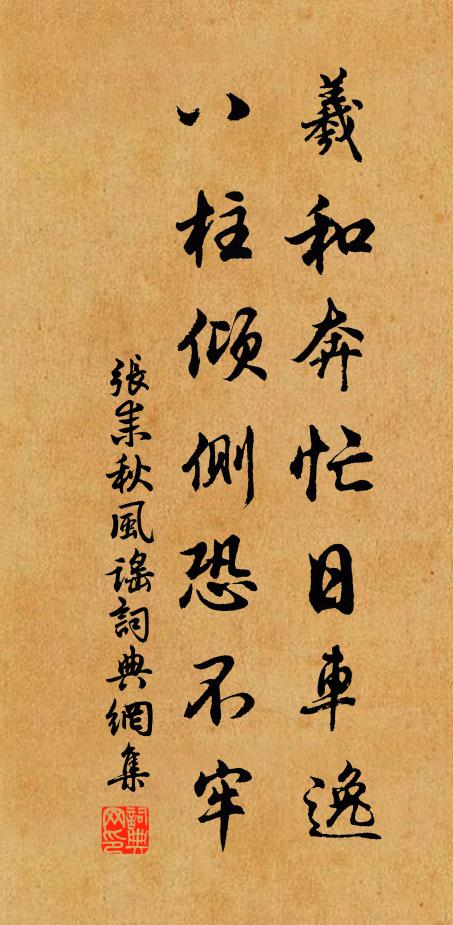 羲和奔忙日車逸
八柱傾側恐不牢
張耒秋風謠詞典網集
詞典网印